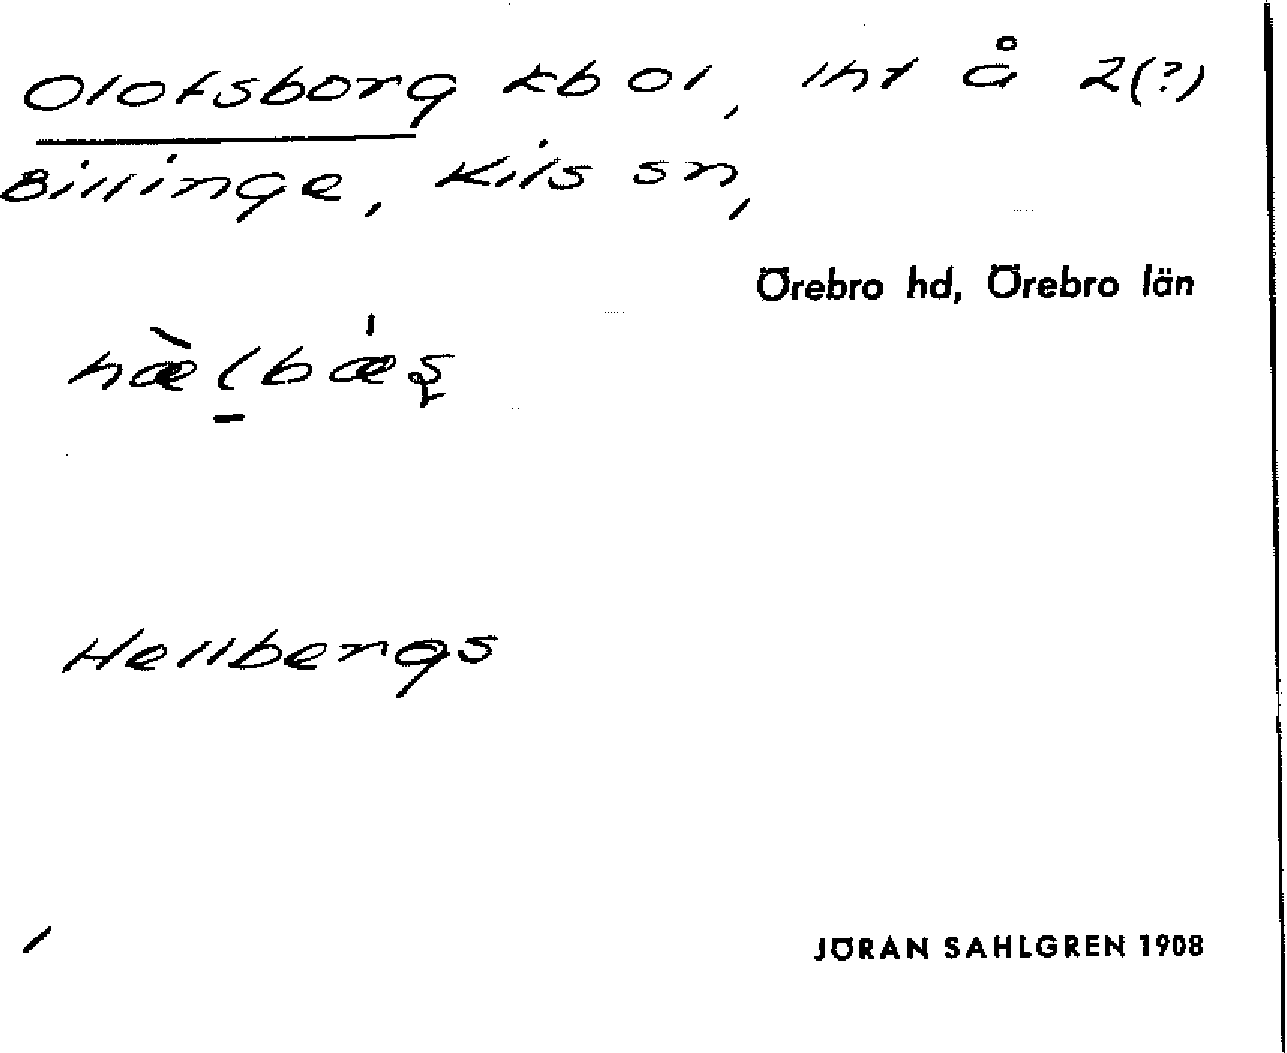 Olofsborg kb ol, lht å 2(?)
Billinge, Kils sn,
Örebro hd, Örebro län
Hellbergs
JÖRAN SAHLGREN 1908